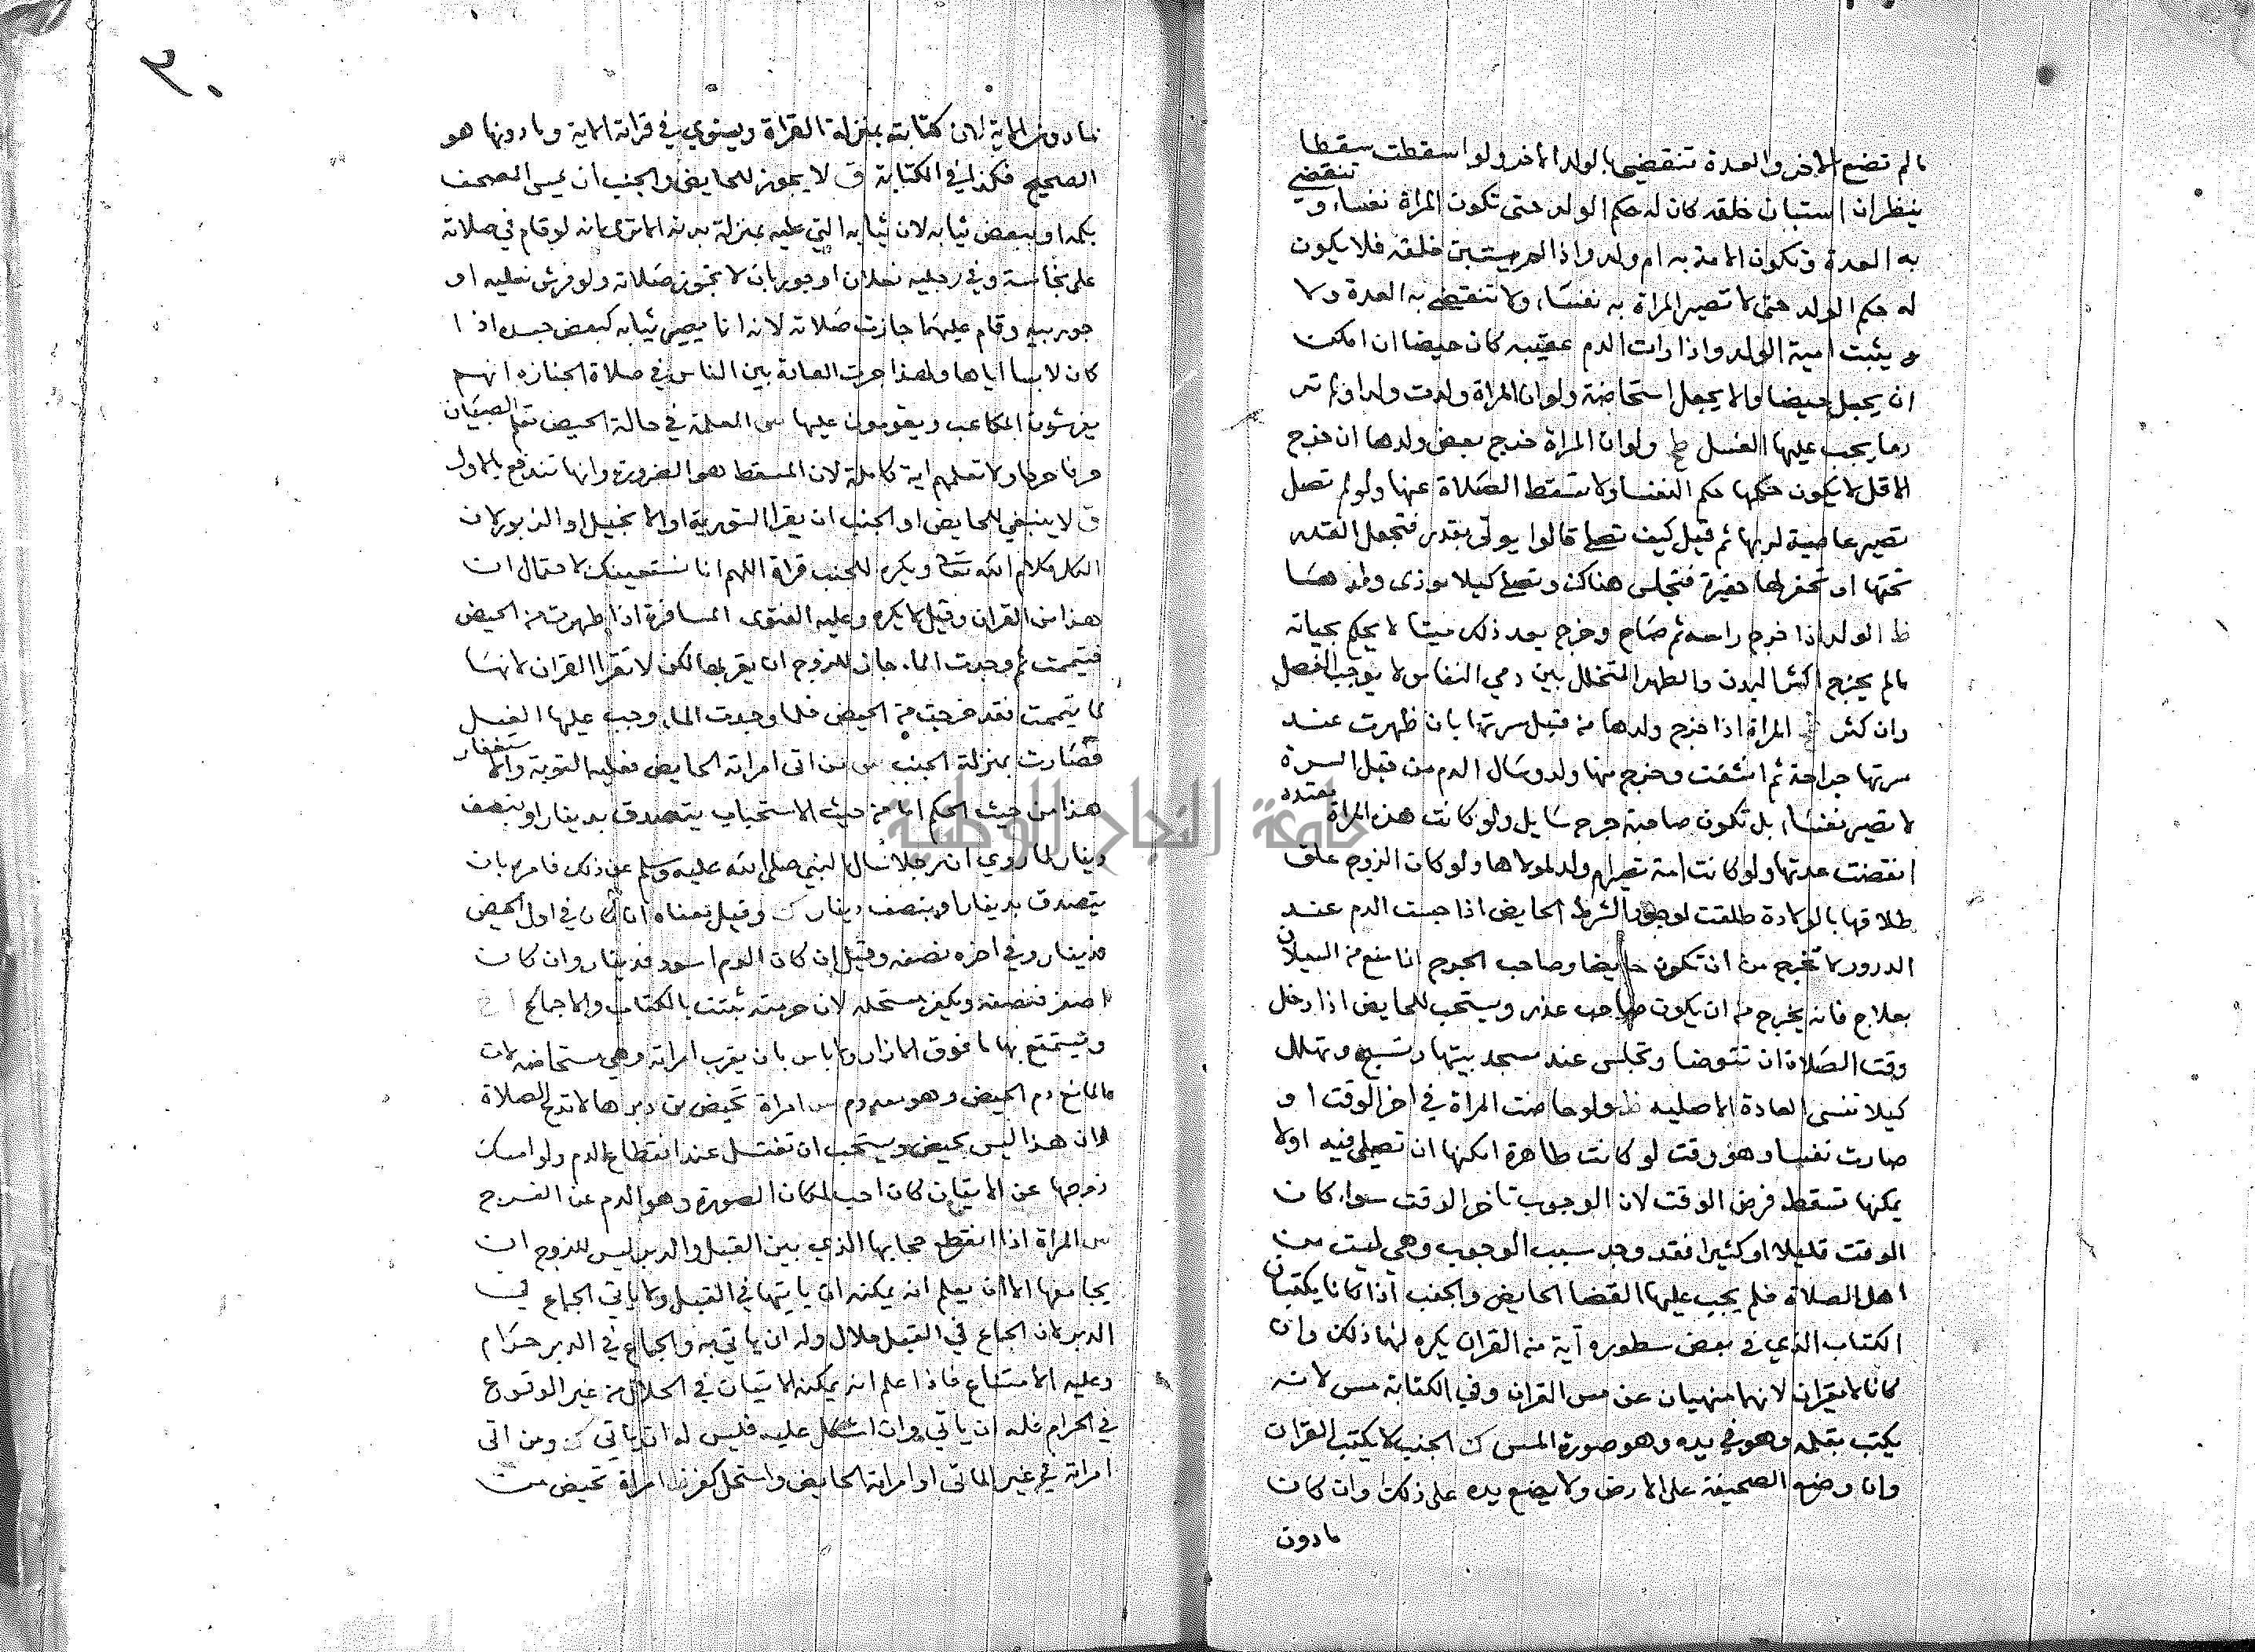 مالم تضع الاخر والعدة تنقضي بالولد الاخر ولو اسقطت سقطا
ينظر ان استبان خلقه كان له حكم الولد حتى تكون المراة نفساء و تنقضي
به العدة وتكون الامة به ام ولد واذا لم يستبين خلقه فلا يكون
له حكم الولد حتى لا تصير المراة به نفساء ولا تنقضي به العدة ولا
يثبت امية الولد واذا رات الدم عقيبه كان حيضا ان امكن
ان يجعل حيضا والا يجعل استحاضة ولو ان المراة ولدت ولدا ولم تر
دما يجب عليها الغسل ولو ان المراة خرج بعض ولدها ان خرج
الاقل لا يكون حكمها حكم النفسا ولا تسقط الصلاة عنها ولو لم تصل
تصير عاصية لربها ثم قيل كيف تصلي قالوا يوتى بقدر فتجعل القدر
تحتها او تحفر لها حفيرة فتجلس هناك وتصلي كيلا يوذى ولدها
ظ الولد اذا خرج راسه ثم صاح وخرج بعد ذلك ميتا لا يحكم بحياته
مالم يخرج اكثر البدن والطهر المتخلل بين دمي النفاس لا يوجب الفصل
وان كثر المراة اذا خرج ولدها من قبل سرتها بان ظهرت عند
سرتها جراحة ثم انشقت وخرج منها ولد وسال الدم من قبل السرة
لا تصير نفساء بل تكون صاحبة جرح سايل ولو كانت هذه المراة معتدة
انقضت عدتها ولو كانت امة تصير ام ولد لمولاها ولو كان الزوج علق
طلاقها بالولادة طلقت لوجود الشرط الحايض اذا حبست الدم عند
الدرور لا تخرج من ان تكون حايضا وصاحب الجرح اذا منع من السيلان
بعلاج فانه يخرج من ان يكون صاحب عذر ويستحب للحايض اذا دخل
وقت الصلاة ان تتوضا وتجلس عند مسجد بيتها وتسبح وتهلل
كيلا تنسى العادة الاصليه ظ ولو حاضت المراة في اخر الوقت او
صارت نفسا وهو وقت لو كانت طاهرة امكنها ان تصلي فيه اولا
يمكنها تسقط فرض الوقت لان الوجوب تاخر الوقت سواء كان
الوقت قليلا او كثيرا فقد وجد سبب الوجوب وهي ليست من
اهل الصلاة فلم يجب عليها القضا الحايض والجنب اذا كانا يكتبان
الكتاب الذي في بعض سطوره آية من القران يكره لهما ذلك وان
كانا لا يقران لانهما منهيان عن مس القران وفي الكتابة مس لانه
يكتب بقلمه وهو في يده وهو صورة المس ك الجنب لا يكتب القران
وان وضع الصحيفة على الارض ولا يضع يده على ذلك وان كان
مادون
٢٠
مادون الاية لان كتابته بمنزلة القراة ويستوي في قراة الاية ومادونها هو
الصحيح فكذا في الكتابة ق لا يجوز للحايض والجنب ان يمس المصحف
بكمه او ببعض ثيابه لان ثيابه التي عليه بمنزلة بدنه الا ترى انه لو قام في صلاته
على نجاسة وفي رجليه نعلان او جوربان لا تجوز صلاته ولو فرش نعليه او
جوربيه وقام عليهما جازت صلاته لانه انما يصير ثيابه كبعض جسده اذا
كان لابسا اياها ولهذا جرت العادة بين الناس في صلاة الجنازه انهم
يفرشون المكاعب ويقومون عليها س المعلمة في حالة الحيض تعلم الصبيان
حرفا حرفا ولا تعلمهم اية كاملة لان المسقط هو الضرورة وانها تندفع بالاول
ق لا ينبغي للحايض او الجنب ان يقرا التورية او الانجيل او الزبور لان
الكل كلام الله تعالى ويكره للجنب قراة اللهم انا نستعينك لاحتمال ان
هذا من القران وقيل لا يكره وعليه الفتوى المسافرة اذا طهرت من الحيض
فتيممت ثم وجدت الماء جاز للزوج ان يقربها لكن لا تقرا القران لانها
لما تيممت فقد خرجت من الحيض فلما وجدت الماء وجب عليها الغسل
فصارت بمنزلة الجنب س من اتى امراته الحايض فعليه التوبة والاستغفار
هذا من حيث الحكم اما من حيث الاستحباب يتصدق بدينار او بنصف
دينار لما روي ان رجلا سال النبي صلى الله عليه وسلم عن ذلك فامره بان
يتصدق بدينار او بنصف دينار ك وقيل معناه ان كان في اول الحيض
فدينار وفي اخره نصفه وقيل ان كان الدم اسود فدينار وان كان
اصفر فنصفه ويكفر مستحله لان حرمته ثبتت بالكتاب والاجماع
ويستمتع بها ما فوق الازار ولا باس بان يقرب امراته وهي مستحاضه لان
المانع دم الحيض وهو معدوم س امراة تحيض من دبرها لا تدع الصلاة
لان هذا ليس بحيض ويستحب ان تغتسل عند انقطاع الدم ولو امسك
زوجها عن الاتيان كان احب لمكان الصورة وهو الدم عن الفرج
س المراة اذا انقطع حجابها الذي بين القبل والدبر ليس للزوج ان
يجامعها الا ان يعلم انه يمكنه ان ياتيها في القبل ولا ياتي الجماع في
الدبر لان الجماع في القبل حلال وله ان ياتي به والجماع في الدبر حرام
وعليه الامتناع فاذا علم انه يمكنه الاتيان في الحلال من غير الوقوع
في الحرام فله ان ياتي وان اشكل عليه فليس له ان ياتي ك ومن اتى
امراته في غير الماتى او امراته الحايض واستحل كفر امراة تحيض من
جامعة النجاح الوطنية